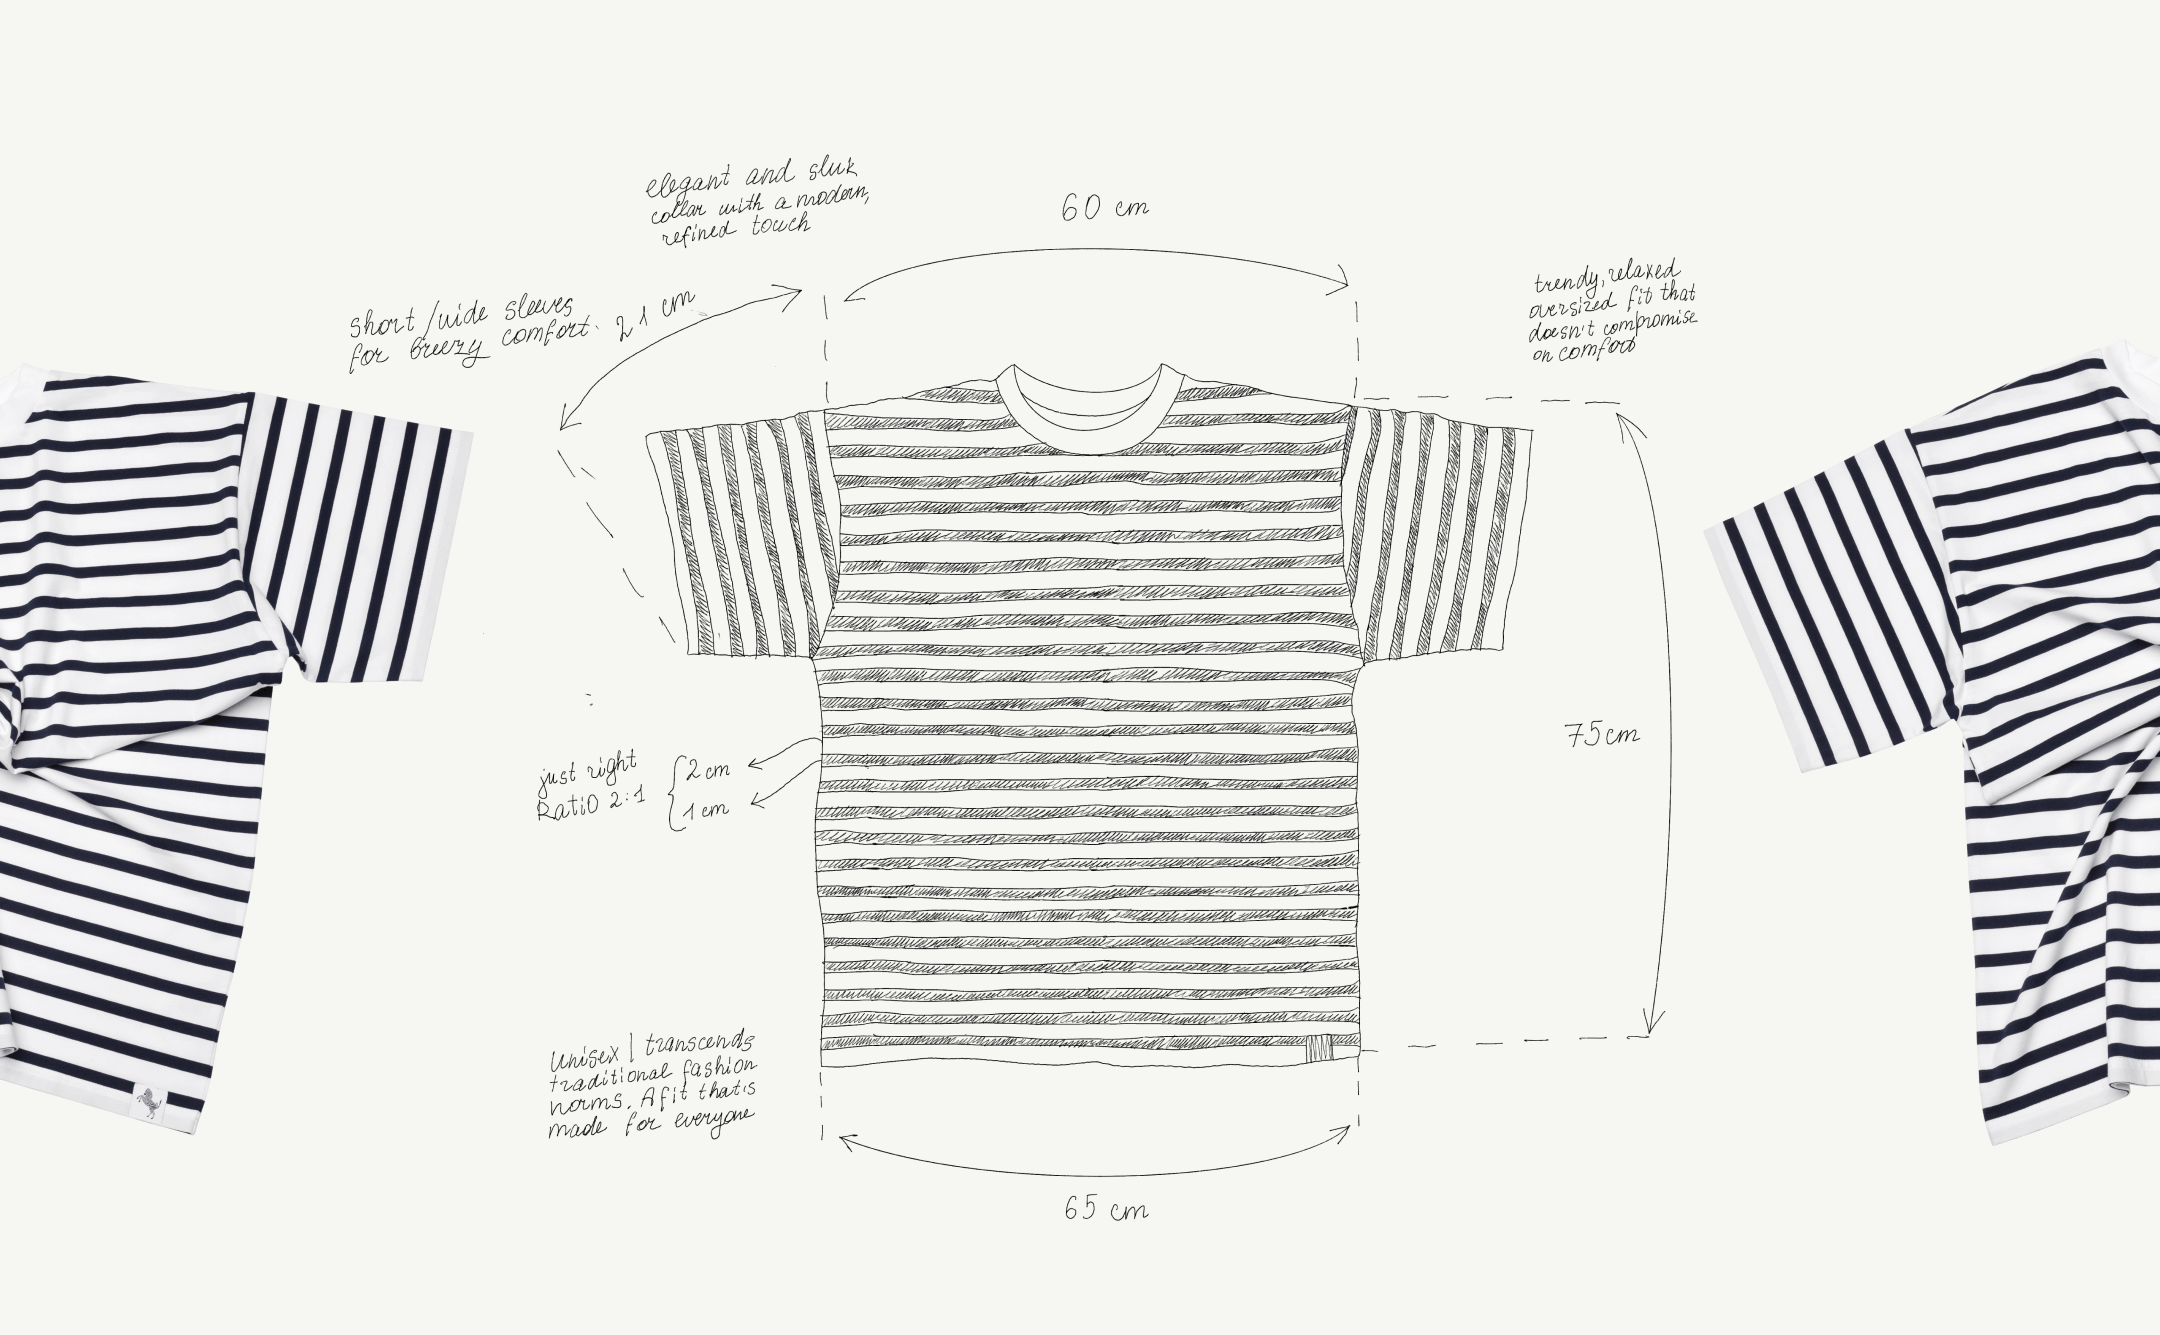 elegant and sluk
collar with a modern,
refined touch
60 cm
short/wide sleeves
for breezy comfort.
21 cm
trendy, relaxed
oversized fit that
doesn't compromise
on comfort
75cm
just right
Ratio 2:1
2 cm
1 cm
Unisex | transcends
traditional fashion
norms. A fit that's
made for everyone
65 cm